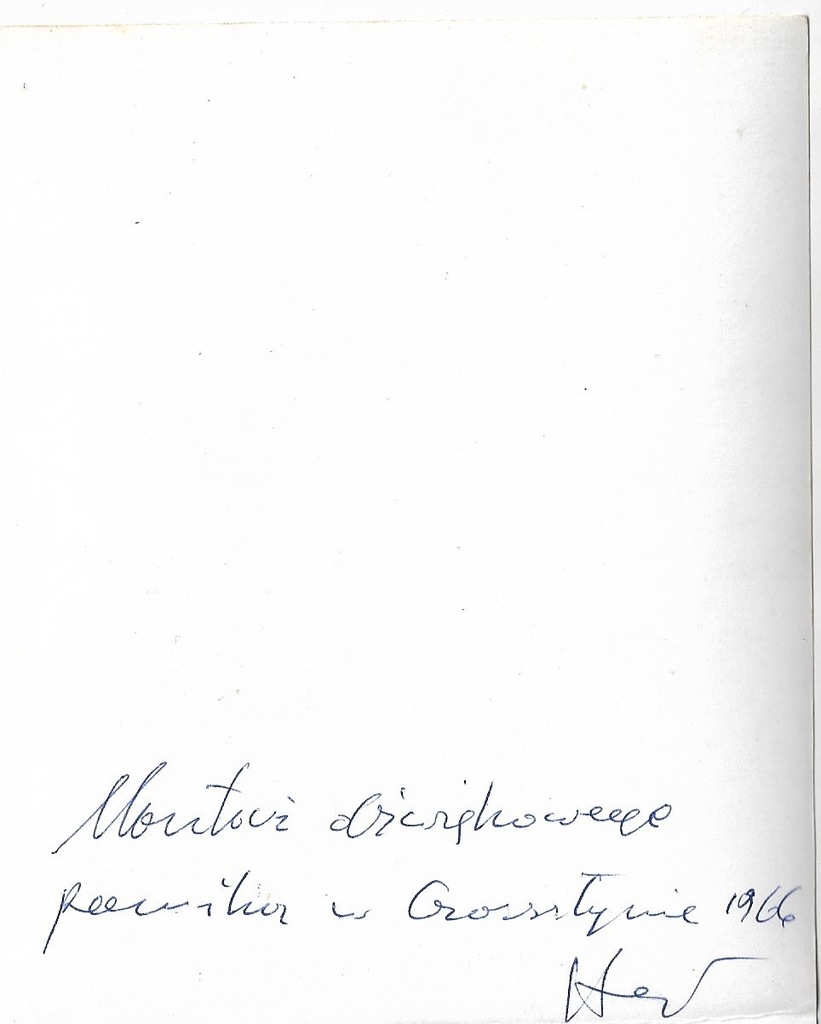 Montaż dźwiękowego
pomnika w Czorsztynie 1966